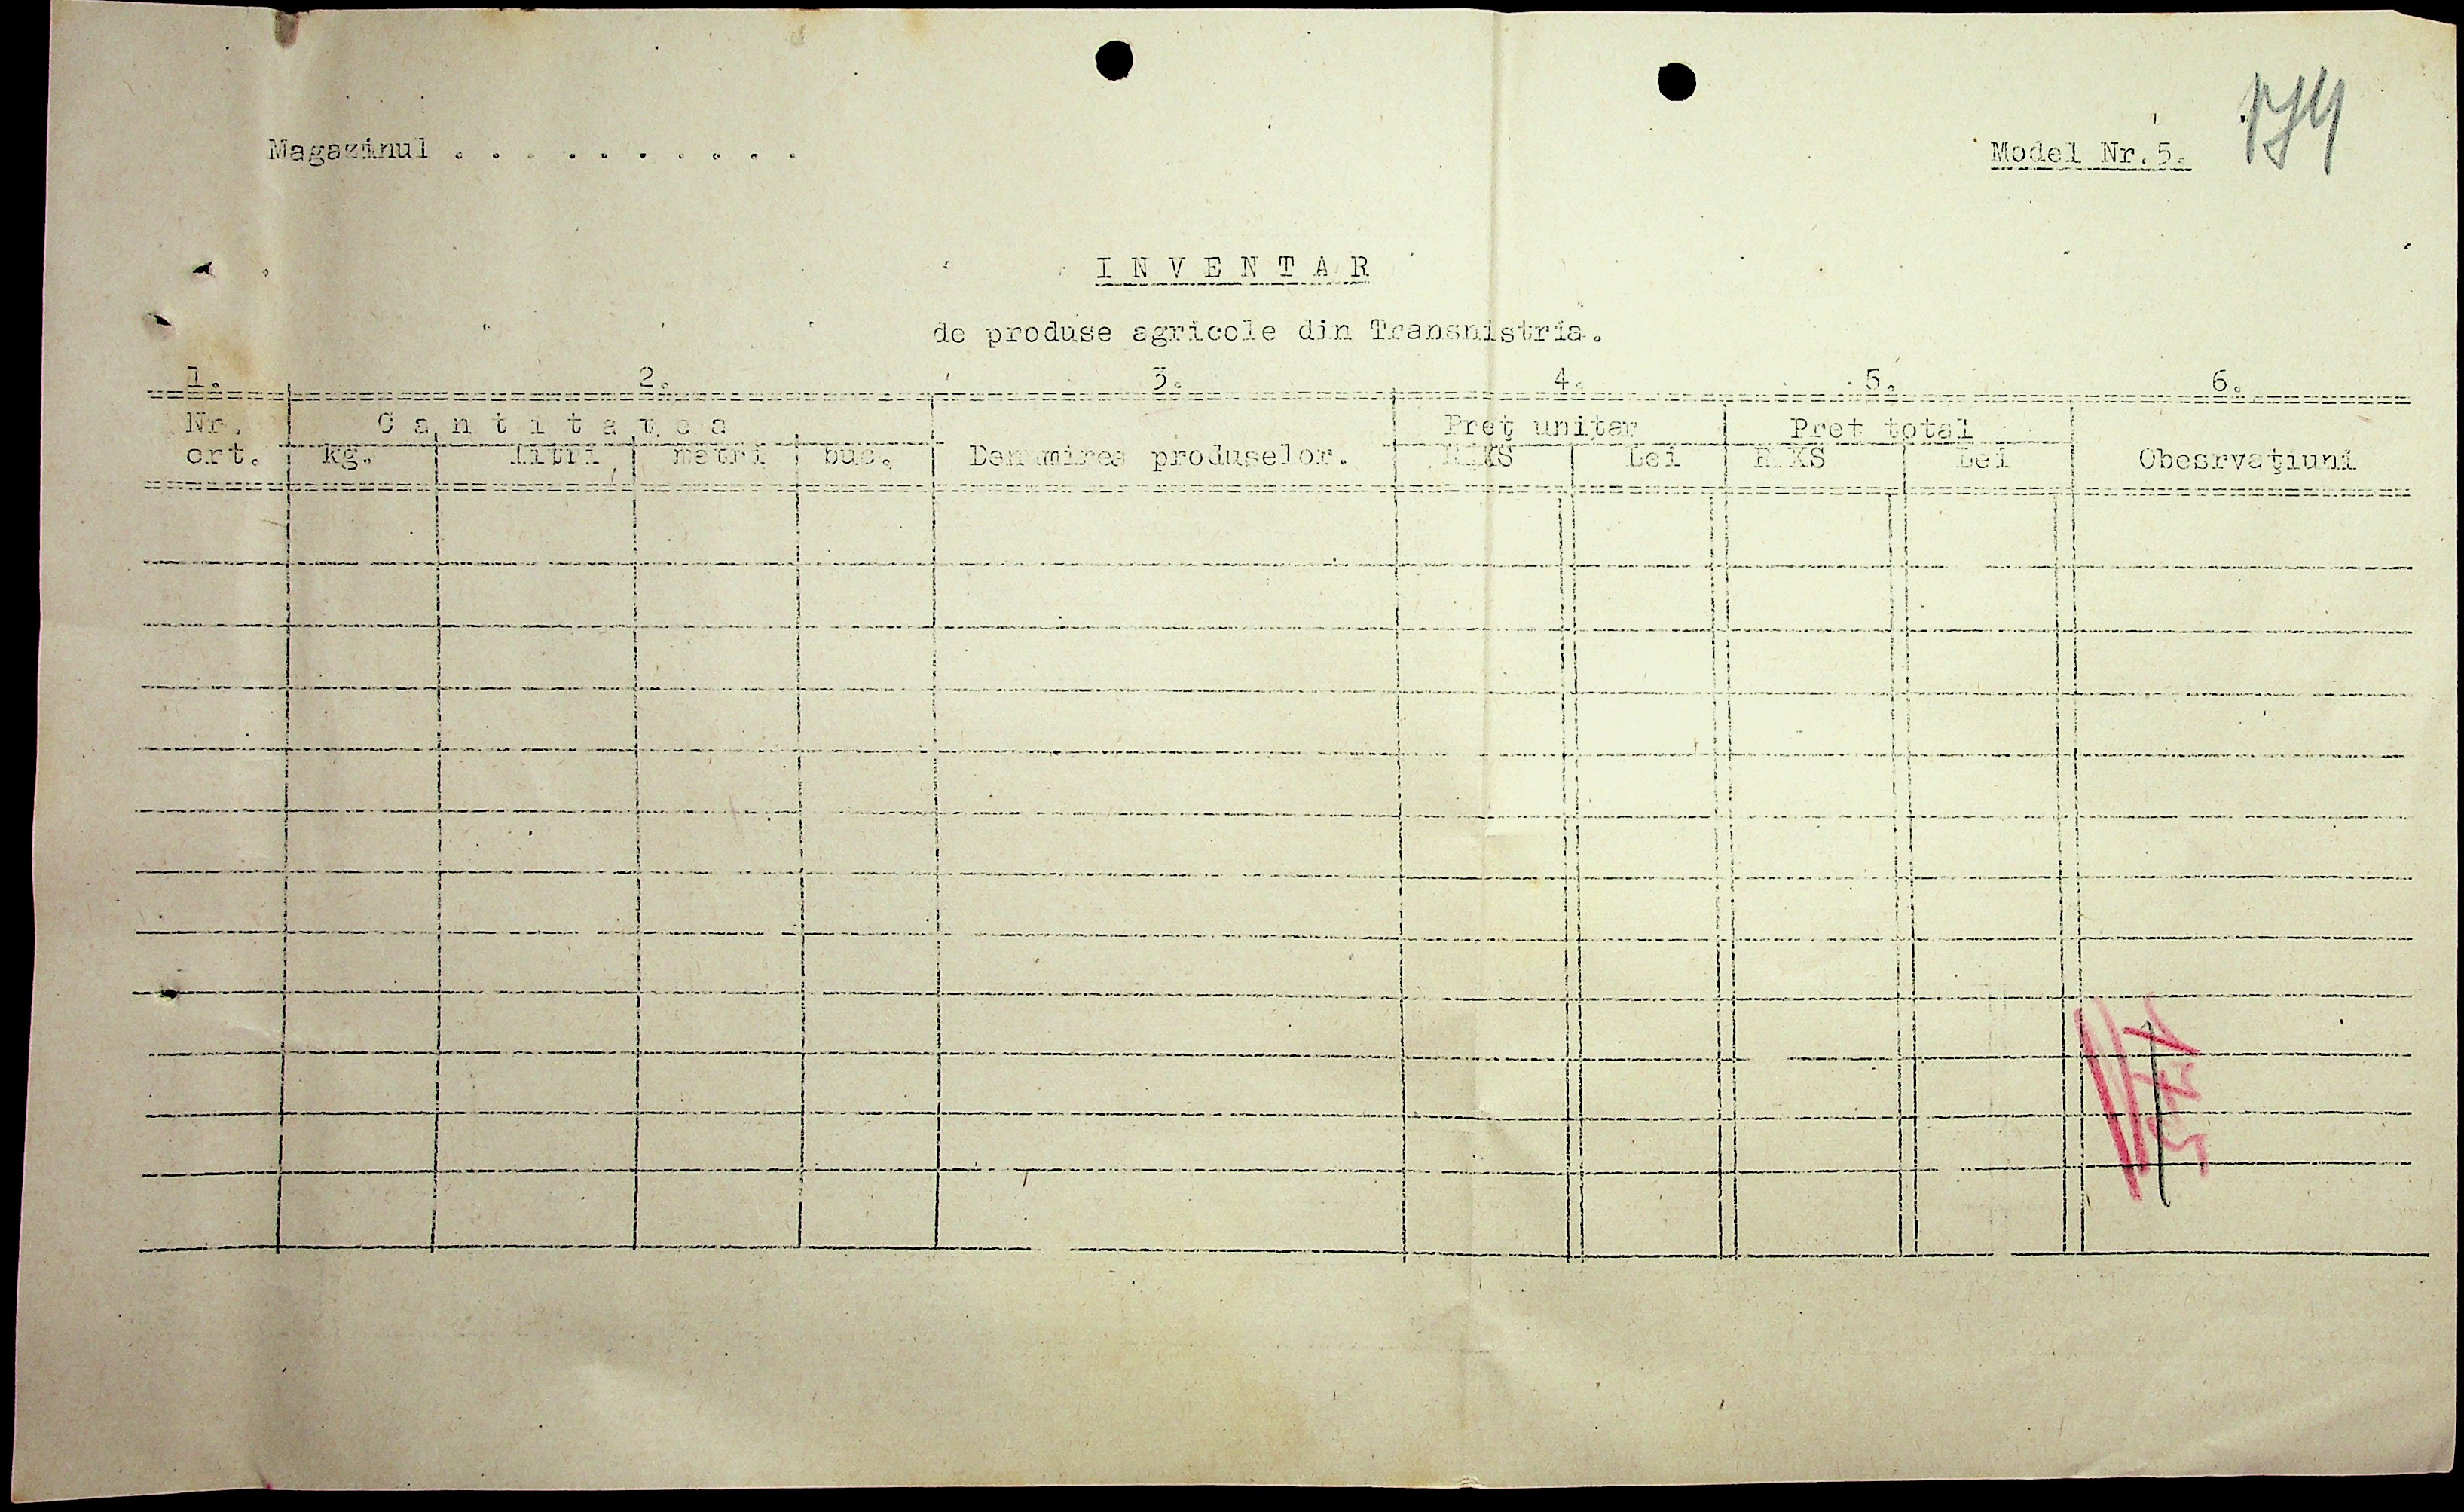 174
Magazinul . . . . . . . . . .
Model Nr.5.
I N V E N T A R
de produse agricole din Transnistria.
1. 2. 3. 4. 5. 6.
Nr. C a n t i t a t e a Preţ unitar Preţ total
crt. kg. litri metri buc. Denumirea produselor. RKKS Lei RKKS Lei Obesrvaţiuni